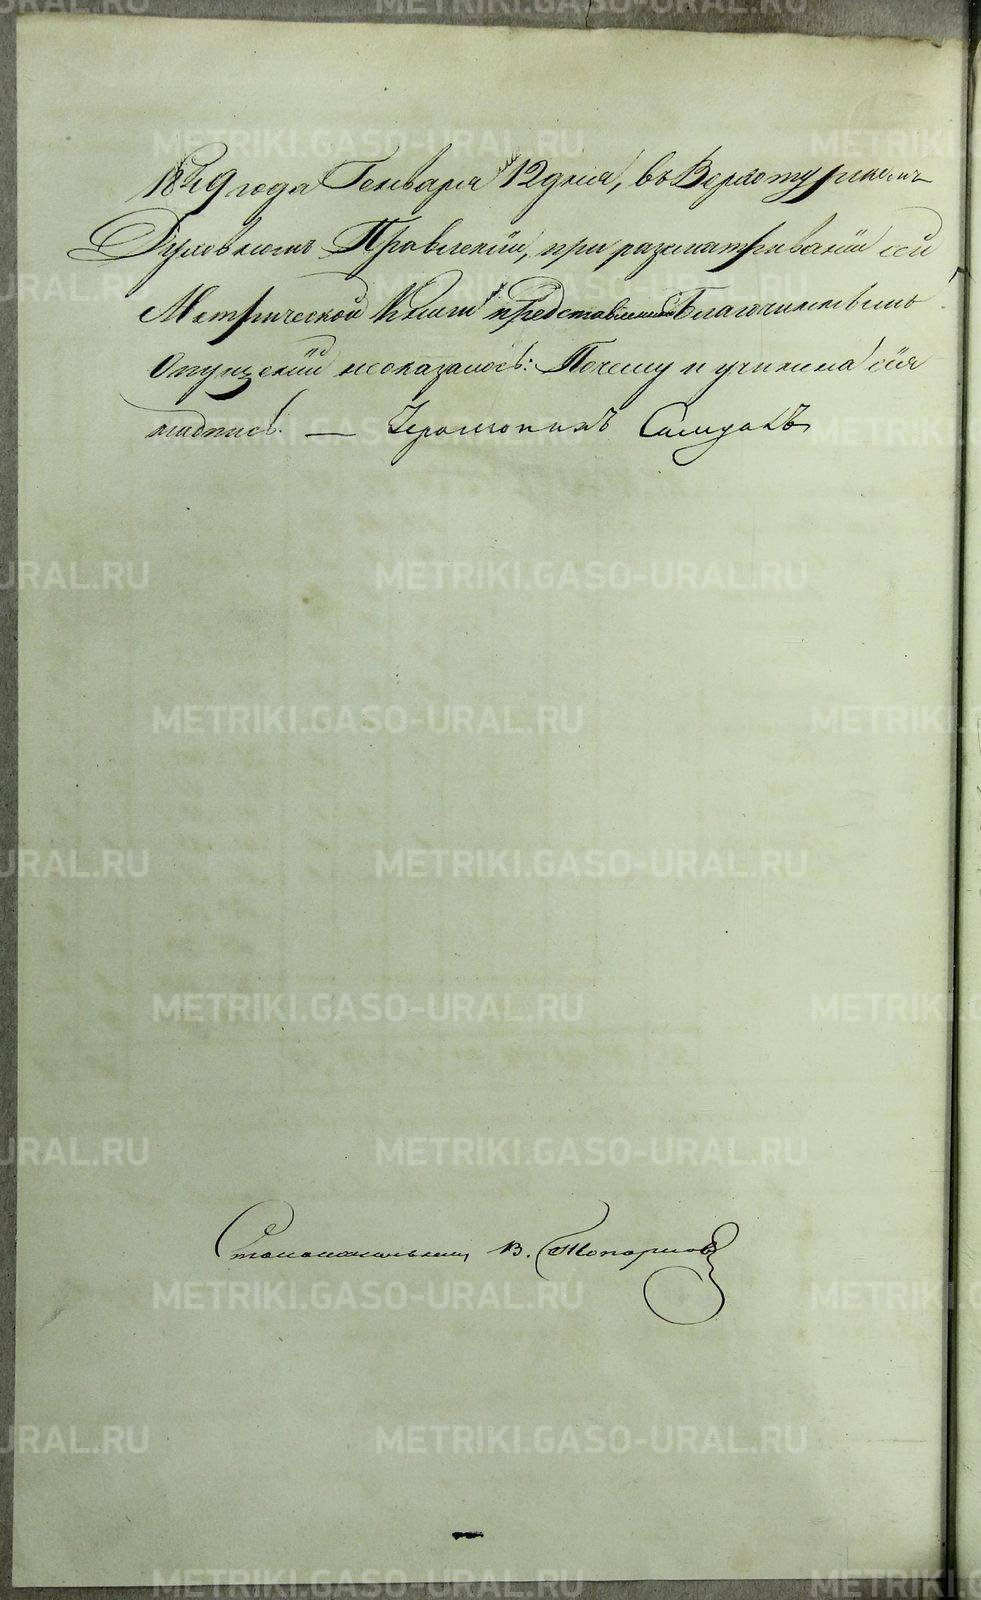 1849 года Генваря 12 дня, въ Верхотурскомъ
Духовномъ Правлении, при разсматривании сей
Метрической Книги представленной Благочиннымъ
Опущений неоказалось: Почему и учинена сия
надпись. — Иеромонахъ
Столоначальникъ В. Топорковъ
METRIKI.GASO-URAL.RU